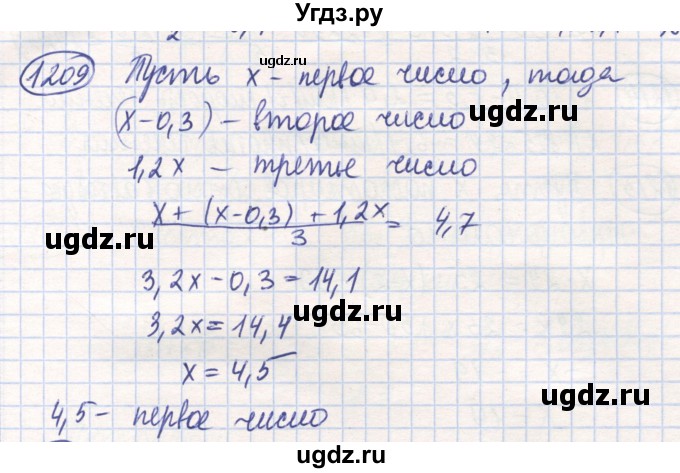 Угдз.ру
1209 Пусть x – первое число, тогда
(x-0,3) – второе число
1,2x – третье число
x + (x-0,3) + 1,2x / 3 = 4,7
3,2x - 0,3 = 14,1
3,2x = 14,4
x = 4,5
4,5 – первое число
ugdz.ru
ugdz.ru
ugdz.ru
ugdz.ru
ugdz.ru
ugdz.ru
ugdz.ru
ugdz.ru